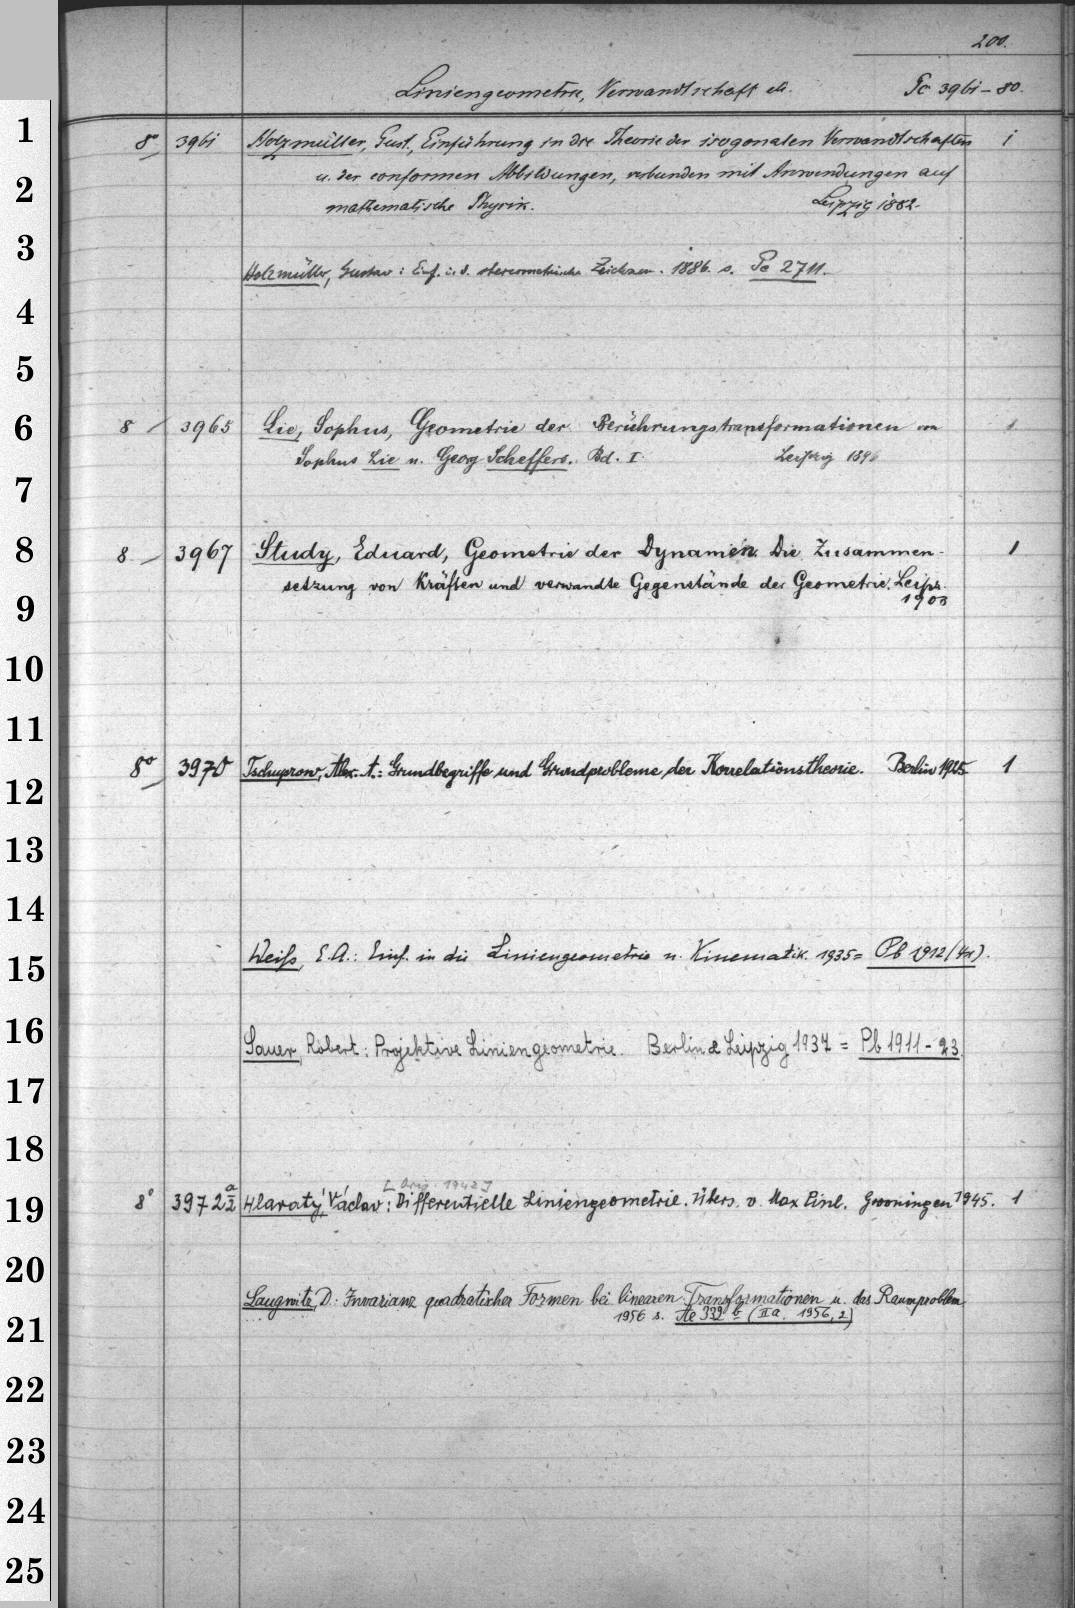 200.
Liniengeometrie, Verwandtschaft etc. Pc 3961-80.
1
8° 3961 Holzmüller, Gust., Einführung in die Theorie der isogonalen Verwandtschaften 1
2
u. der conformen Abbildungen, verbunden mit Anwendungen auf
mathematische Physik. Leipzig 1882.
3
Holzmüller, Gustav: Einf. i. d. stereometrische Zeichnen. 1886. s. Pc 2711.
4
5
6
8 3965 Lie, Sophus, Geometrie der Berührungstransformationen von 1
Sophus Lie u. Georg Scheffers. Bd. I. Leipzig 1896
7
8
8 3967 Study, Eduard, Geometrie der Dynamen. Die Zusammen- 1
setzung von Kräften und verwandte Gegenstände der Geometrie. Leipz.
9
1903
10
11
8° 3970 Tschuprow, Alex. A.: Grundbegriffe und Grundprobleme der Korrelationstheorie. Berlin 1925 1
12
13
14
15
Weiss, E.A.: Einf. in die Liniengeometrie u. Kinematik. 1935 = Pb 1912 (4)
16
Sauer, Robert: Projektive Liniengeometrie. Berlin & Leipzig 1937 = Pb 1911-23
17
18
[Orig. 1942]
19
8° 3972 a/2 Hlavatý, Václav: Differentielle Liniengeometrie. Übers. v. Max Pinl. Groningen 1945. 1
20
Laugwitz, D.: Invarianz quadratischer Formen bei linearen Transformationen u. das Raumproblem
21
1956 s. Ae 339 (IIa. 1956, 2)
22
23
24
25